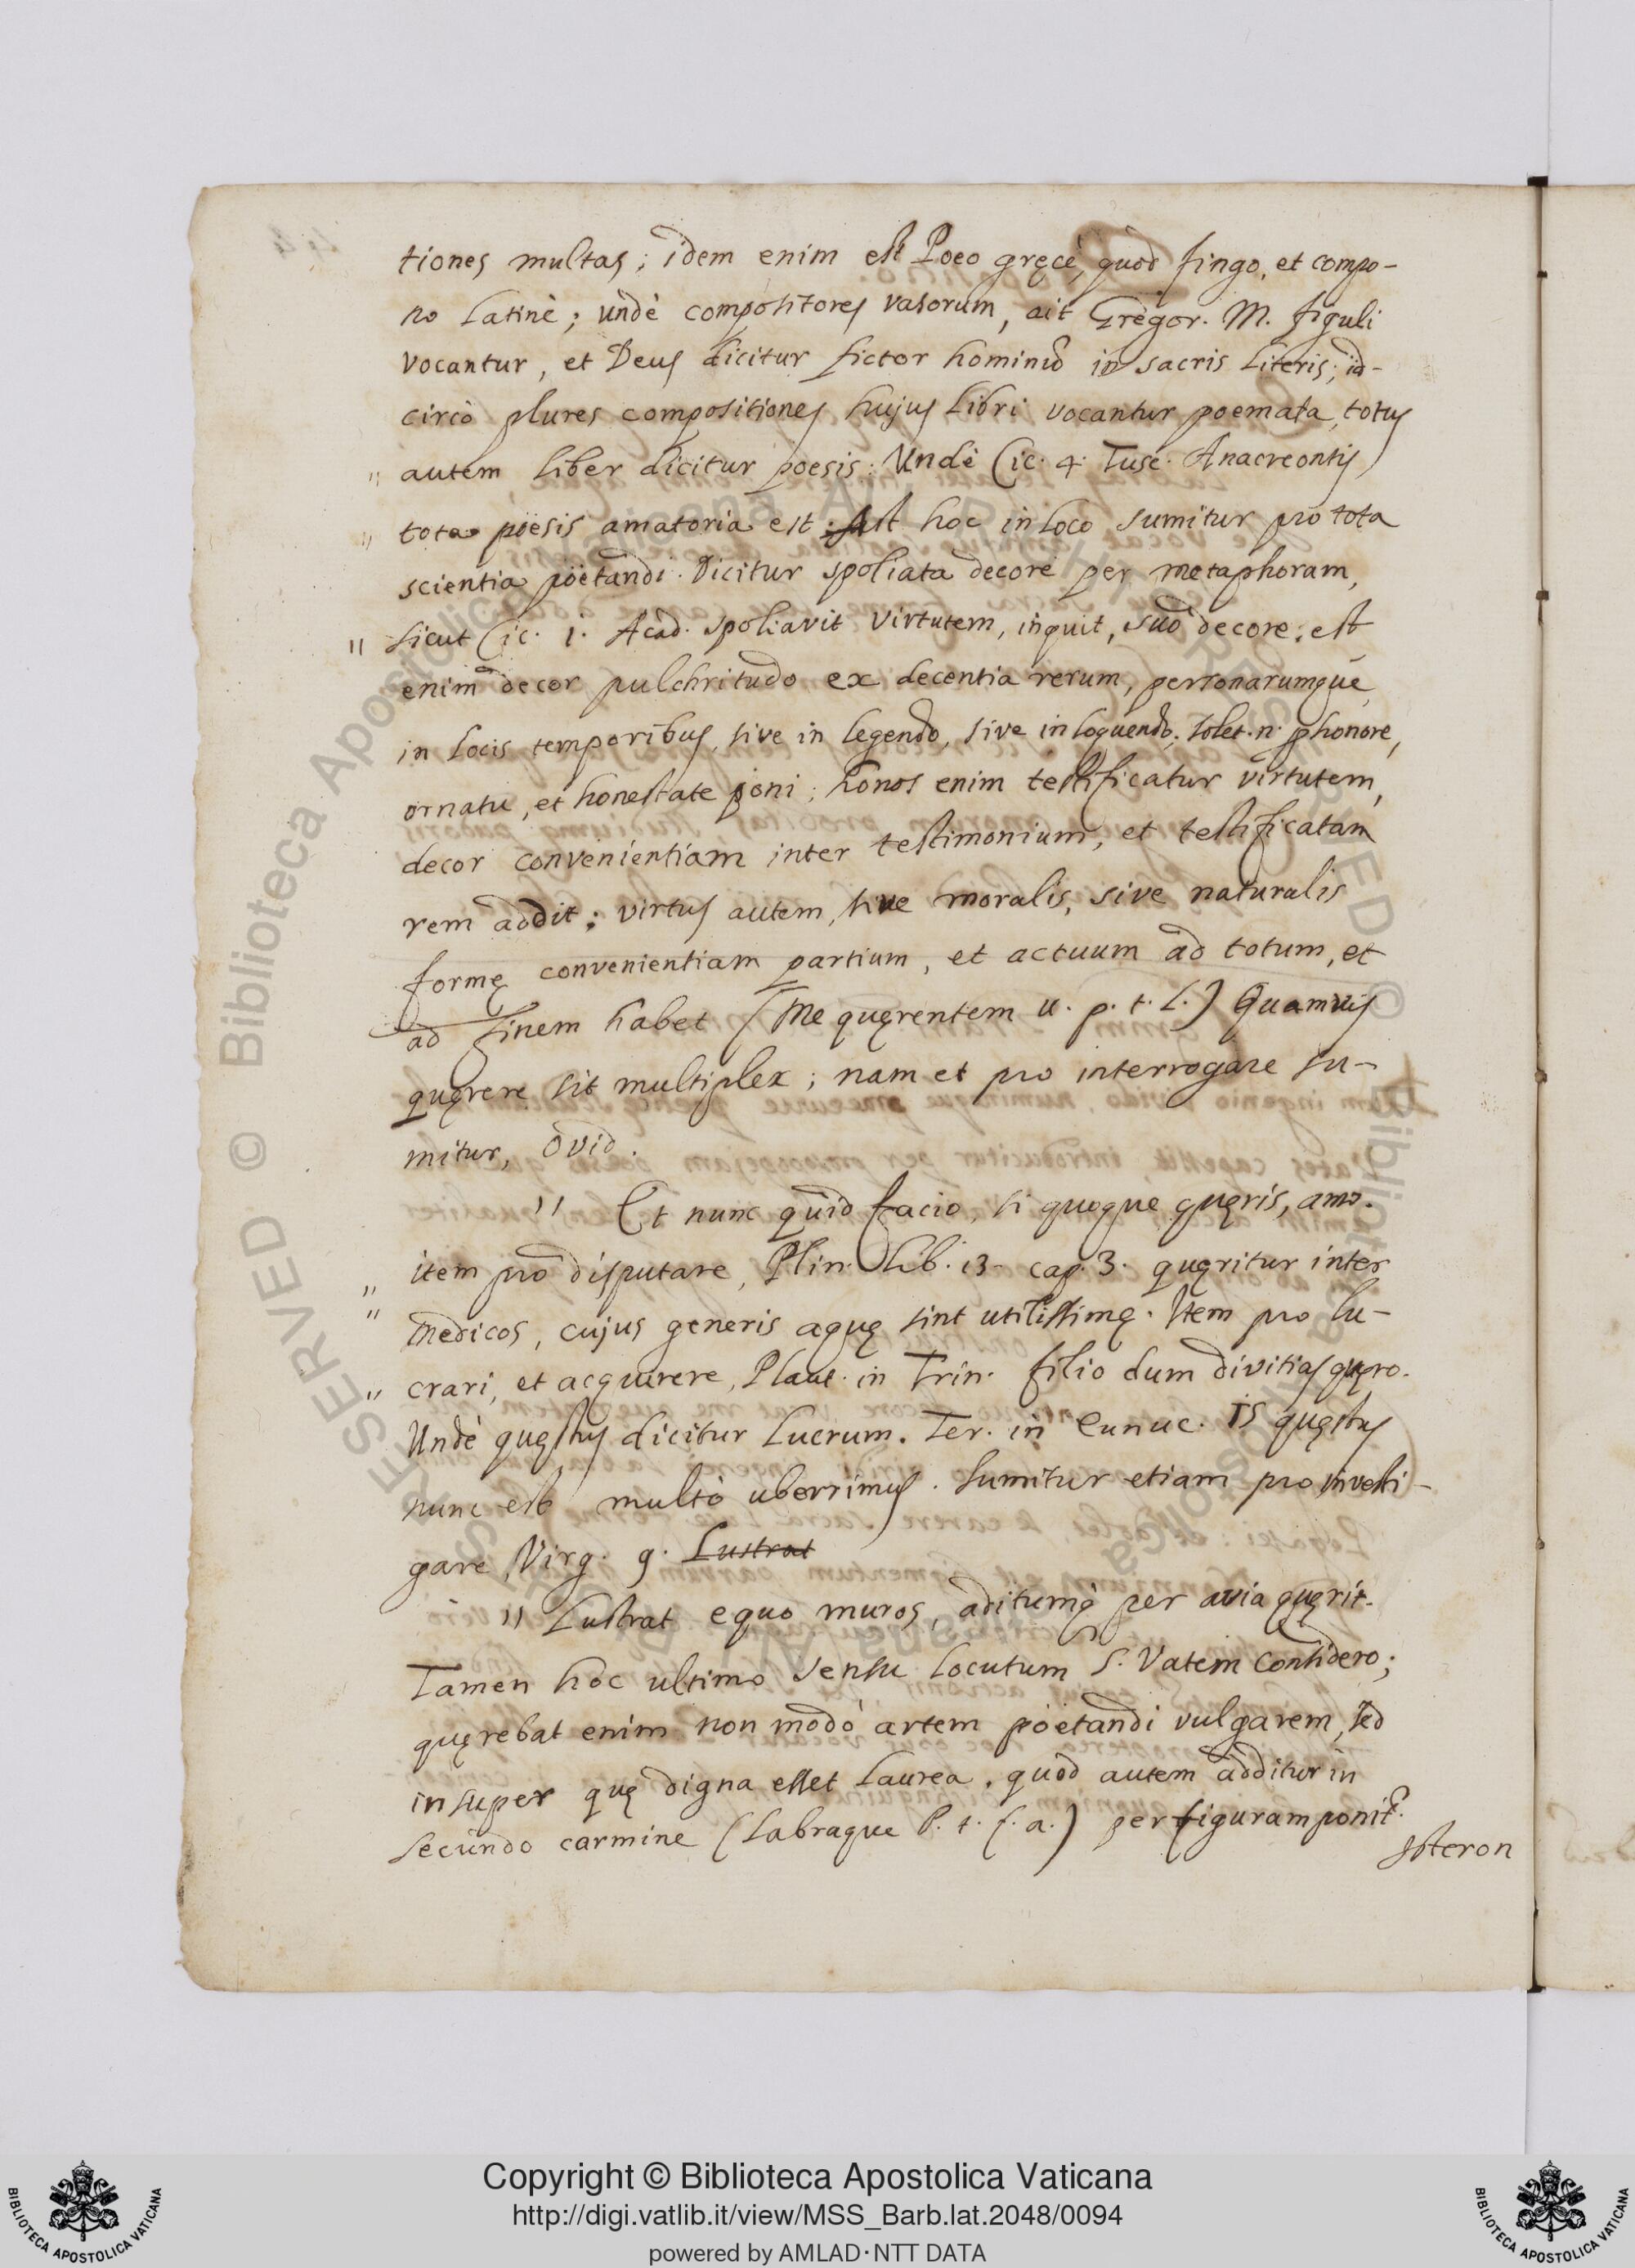 tiones multas; idem enim est Poeo gręcè, quòd fingo, et compo-
no Latinè; undè compositores vasorum, ait Gregor. M. figuli
vocantur, et Deus dicitur fictor hominũ in sacris Literis; id-
circò plures compositiones hujus Libri vocantur poemata, totus
" autem liber dicitur poesis: Undè Cic. 4. Tusc. Anacreontis
" tota pöesis amatoria est. Ast hoc in loco sumitur pro tota
scientia pöetandi. Dicitur spoliata decore per metaphoram,
" sicut Cic. 1. Acad. spoliavit virtutem, inquit, suo decore; est
enim decor pulchritudo ex decentia rerum, personarumque
in locis temporibus, sive in legendo, sive in loquendo; solet .n. p honore,
ornatu, et honestate poni; honos enim testificatur virtutem,
decor convenientiam inter testimonium, et testificatam
rem addit; virtus autem, sive moralis, sive naturalis
formę convenientiam partium, et actuum ad totum, et
ad finem habet (Me quęrentem u. p. t. l.) Quamvis
quęrere sit multiplex; nam et pro interrogare su-
mitur, Ovid.
" Et nunc quid facio, si quoque quęris, amo.
" item pro disputare, Plin. Lib. 13. cap. 3. quęritur inter
" medicos, cujus generis aquę sint utilissimę. Item pro lu-
" crari, et acquirere, Plaut. in Trin. filio dum divitias quęro.
Undè quęstus dicitur Lucrum. Ter. in Eunuc. Is quęstus
nunc est multò uberrimus. Sumitur etiam pro investi-
gare, Virg. 9. Lustrat
" Lustrat equo muros, aditumq́ per avia quęrit.
Tamen hoc ultimo sensu locutum S. Vatem considero;
quęrebat enim non modò artem pöetandi vulgarem, sed
insuper quę digna esset Laurea. quòd autem additur in
secundo carmine (Labraque P. t. s. a.) per figuram ponit.
Isteron
Copyright © Biblioteca Apostolica Vaticana
http://digi.vatlib.it/view/MSS_Barb.lat.2048/0094
powered by AMLAD·NTT DATA
BIBLIOTECA APOSTOLICA VATICANA
BIBLIOTECA APOSTOLICA VATICANA